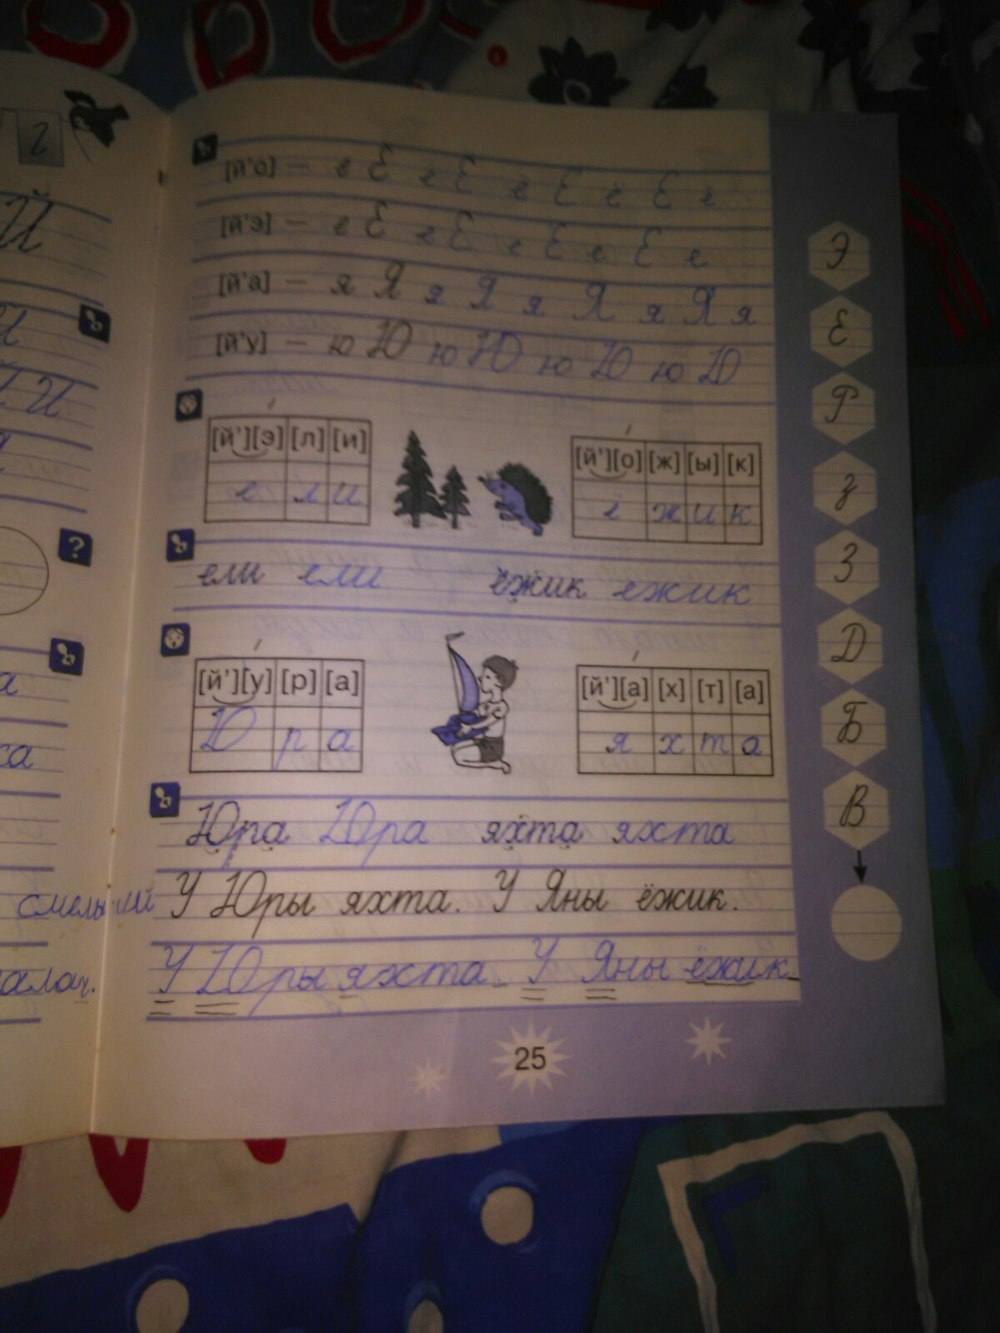 [й'о] — е Ё е Ё е Ё е Ё е
[й'э] — е Е е Е е Е е Е е
[й'а] — я Я я Я я Я я Я я
[й'у] — ю Ю ю Ю ю Ю ю Ю
[й'][э] [л] [и]
е л и
[й'][о] [ж] [ы] [к]
ё ж и к
ели ели ёжик ежик
[й'][у] [р] [а]
Ю р а
[й'][а] [х] [т] [а]
я х т а
Юра Юра яхта яхта
У Юры яхта. У Яны ёжик.
У Юры яхта. У Яны ёжик.
25
Э
Е
Р
з
З
Д
Б
В
2
Й
И
?
а
са
алач.